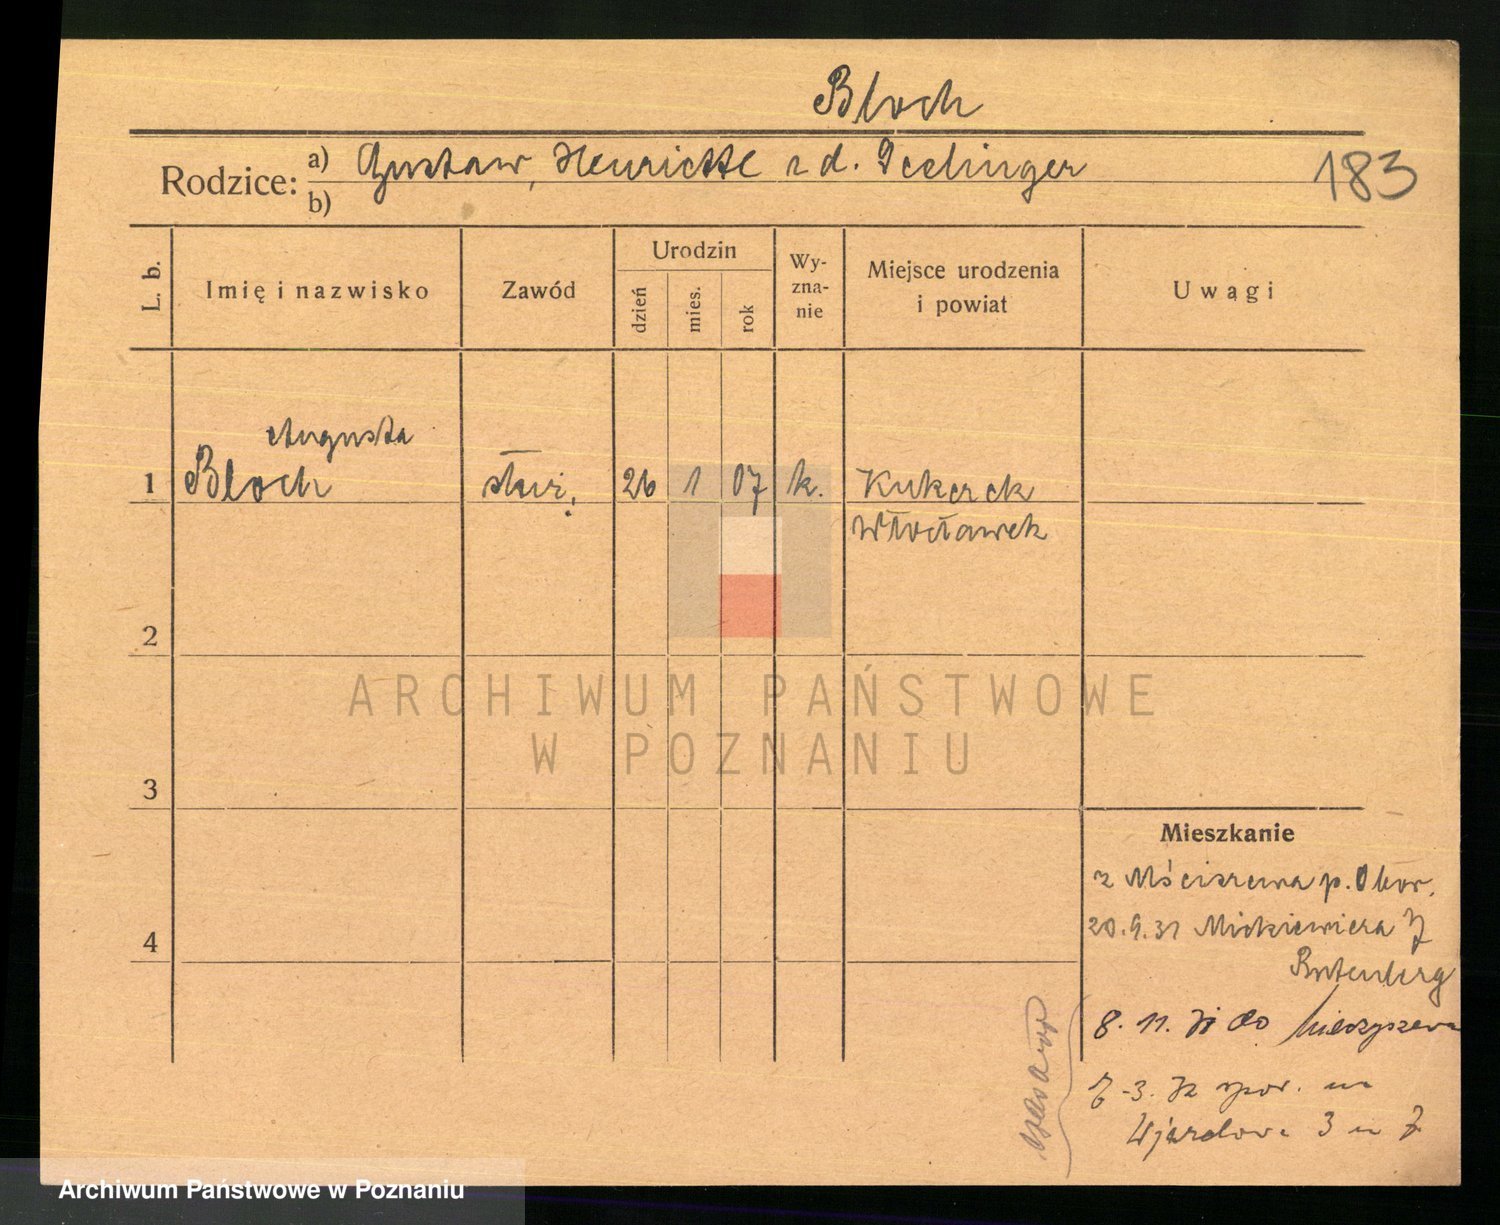 Bloch
Rodzice: a) Gustaw, Henriette z d.
b)
183
L. b.
Imię i nazwisko
Zawód
Urodzin
dzień
mies.
rok
Wy-
zna-
nie
Miejsce urodzenia
i powiat
Uwagi
Augusta
1 Bloch służ. 26 1 07 k.
Włocławek
2
3
4
ARCHIWUM PAŃSTWOWE
W POZNANIU
Mieszkanie
z Mściszewa p. Obor.
20.9.31 Mickiewicza 7
Rutenberg
8. 11. 31 do
7-3. 32 na
Wjazdowa 3 m 7
Archiwum Państwowe w Poznaniu